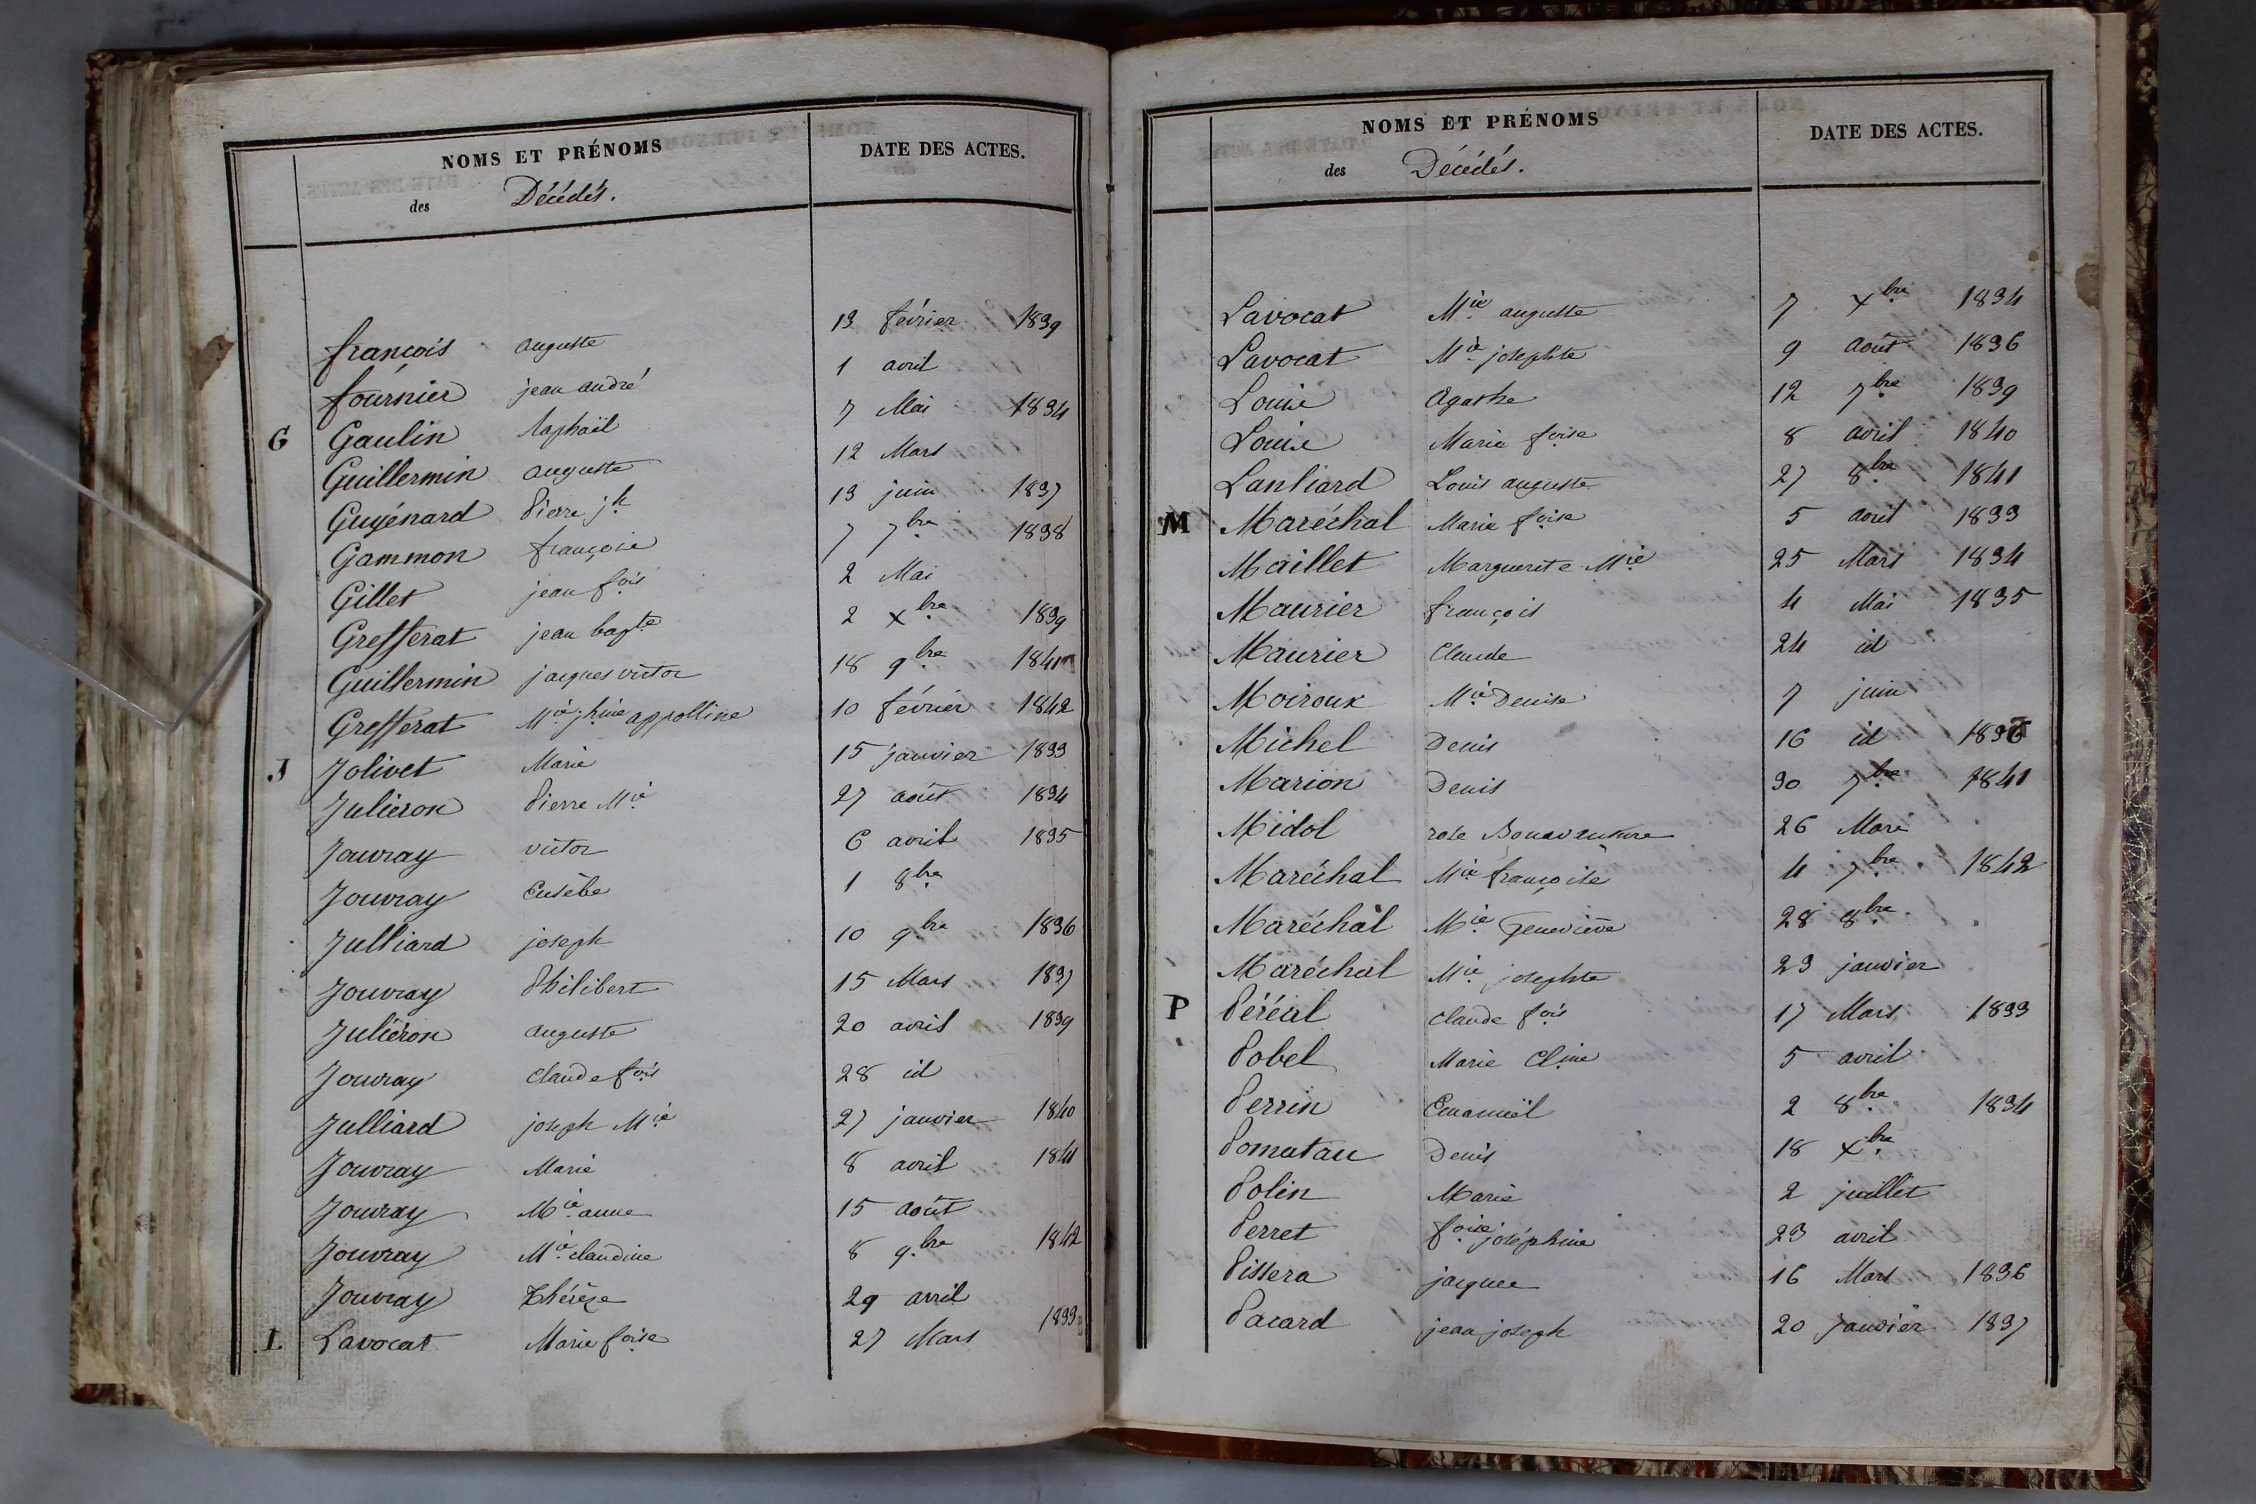 NOMS ET PRÉNOMS
des Décédés.
DATE DES ACTES.
françois auguste 13 février 1839
fournier jean andré 1 avril
G Gaulin Raphaël 7 Mai 1834
Guillermin auguste 12 Mars
Guyénard Pierre jh 13 juin 1837
Gammon françoise 7 7bre 1838
Gillet jean fois 2 Mai
Grefferat jean bapte 2 xbre 1839
Guillermin jacques victor 18 9bre 1841
Grefferat Mie jhine appolline 10 février 1842
J Jolivet Marie 15 janvier 1833
Juliéron Pierre Mie 27 août 1834
Jouvray victor 6 avril 1835
Jouvray Eusèbe 1 8bre
Julliard joseph 10 9bre 1836
Jouvray Philibert 15 Mars 1837
Juliéron auguste 20 avril 1839
Jouvray Claude fois 28 id
Julliard joseph Mie 27 janvier 1840
Jouvray Marie 8 avril 1841
Jouvray Mie anne 15 août
Jouvray Mie claudine 8 9bre 1842
Jouvray Thérèze 29 avril
L Lavocat Marie foise 27 Mars 1833
NOMS ET PRÉNOMS
des Décédés.
DATE DES ACTES.
Lavocat Mie auguste 7 xbre 1834
Lavocat Mie josephte 9 août 1836
Louise Agathe 12 7bre 1839
Louise Marie foise 8 avril 1840
Lanliard Louis auguste 27 8bre 1841
M Maréchal Marie foise 5 avril 1833
Maillet Marguerite Mie 25 Mars 1834
Maurier françois 4 Mai 1835
Maurier Claude 24 id
Moiroux Mie Denise 7 juin
Michel Denis 16 id 1836
Marion Denis 30 7bre 1841
Midol rose Bonaventure 26 Mars
Maréchal Mie françoise 4 7bre 1842
Maréchal Mie Geneviève 28 8bre
Maréchal Mie josephte 23 janvier
P Péréal Claude fois 17 Mars 1833
Pobel Marie Cline 5 avril
Perrin Emanuël 2 8bre 1834
Pomatau Denis 18 xbre
Polin Marie 2 juillet
Perret foise joséphine 23 avril
Pissera jacques 16 Mars 1836
Pacard jean joseph 20 janvier 1837